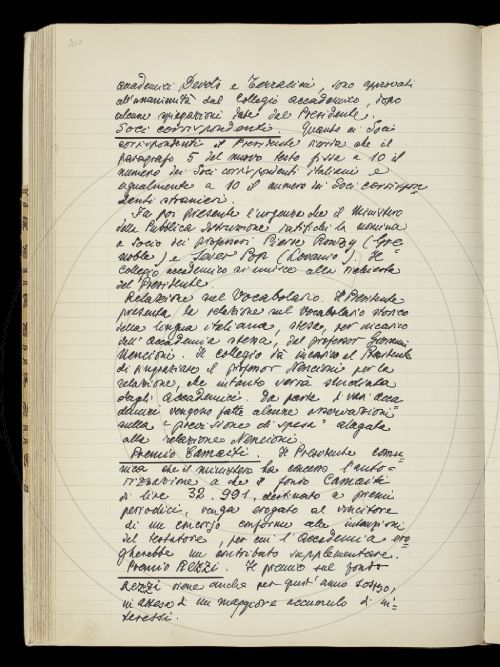 202
accademici Devoto e Terracini, sono approvati
all'unanimità dal Collegio accademico, dopo
alcune spiegazioni date dal Presidente.
Soci corrispondenti. Quanto ai Soci
corrispondenti il Presidente ricorda che il
paragrafo 5 del nuovo testo fissa a 10 il
numero dei Soci corrispondenti italiani e
ugualmente a 10 il numero dei Soci corrispon-
denti stranieri.
Fa poi presente l'urgenza che il Ministero
della Pubblica Istruzione ratifichi la nomina
a socio dei professori Pierre Ronzy (Gre-
noble) e Sever Pop (Lovanio). Il
Collegio accademico si unisce alla richiesta
del Presidente.
Relazione sul Vocabolario. Il Presidente
presenta la relazione sul Vocabolario storico
della lingua italiana, stesa, per incarico
dell'Accademia stessa, dal professor Giovanni
Nencioni. Il Collegio dà incarico al Presidente
di ringraziare il professor Nencioni per la
relazione, che intanto verrà studiata
dagli Accademici. Da parte di vari acca-
demici vengono fatte alcune osservazioni
sulla "previsione di spesa" allegata
alla relazione Nencioni.
Premio Camaiti. Il Presidente comu-
nica che il ministero ha concesso l'auto-
rizzazione a che il fondo Camaiti
di lire 32.991, destinato a premi
periodici, venga erogato al vincitore
di un concorso conforme alle intenzioni
del testatore, per cui l'Accademia ero-
gherebbe un contributo supplementare.
Premio Rezzi. Il premio sul fondo
Rezzi viene anche per quest'anno sospeso,
in attesa di un maggiore accumulo di in-
teressi.